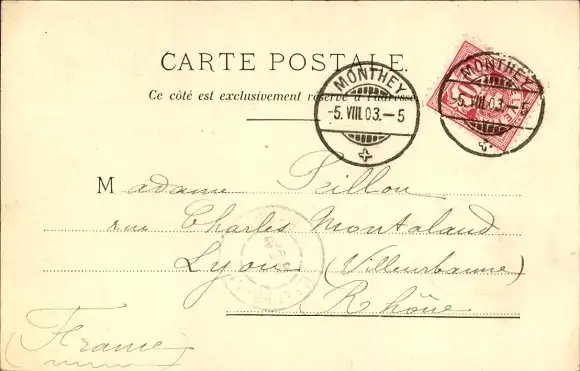 CARTE POSTALE.
Ce côté est exclusivement réservé à l'adresse
MONTHEY
-5.VIII.03.-5
MONTHEY
-5.VIII.03.-5
Madame Peillon
rue Charles Montaland
Lyon (Villeurbanne)
Rhône
(France)